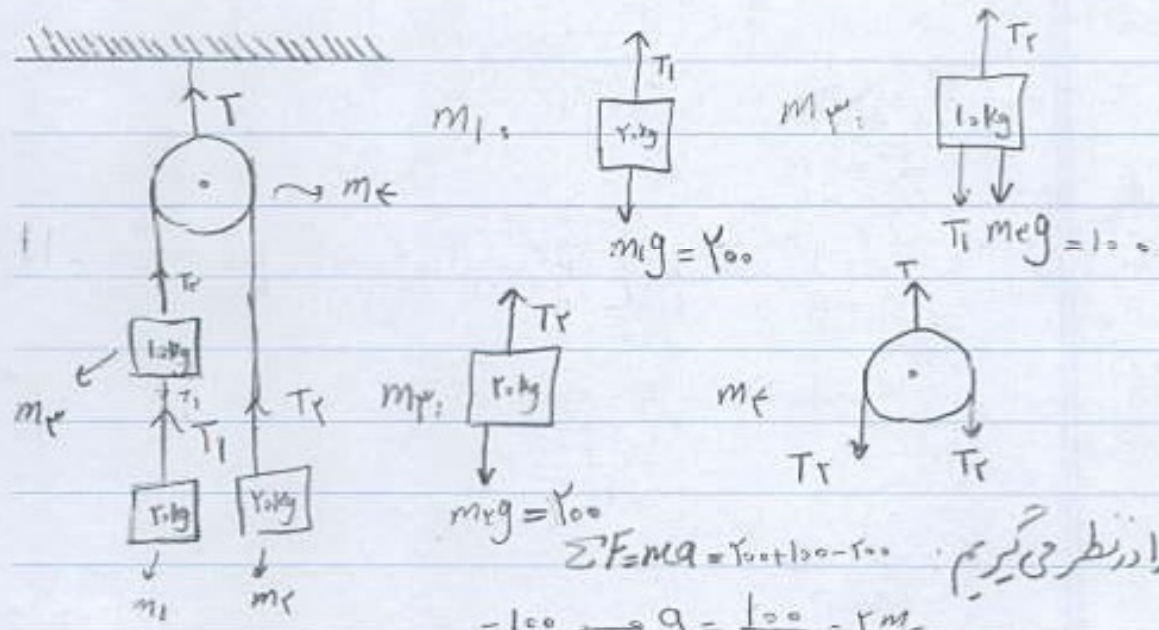 T
m۴
T۲
۱۰kg
m۳
T۱
T۱
T۲
۲۰kg
۲۰kg
m۱
m۲
m۱:
T۱
۲۰kg
m۱g = ۲۰۰
m۳:
T۲
۱۰kg
T۱ m۳g = ۱۰۰
m۲:
T۲
۲۰kg
m۲g = ۲۰۰
m۴
T
T۲ T۲
ΣF=ma = ۲۰۰+۱۰۰-۲۰۰ را در نظر می گیریم.
= ۱۰۰ → a = ۱۰۰